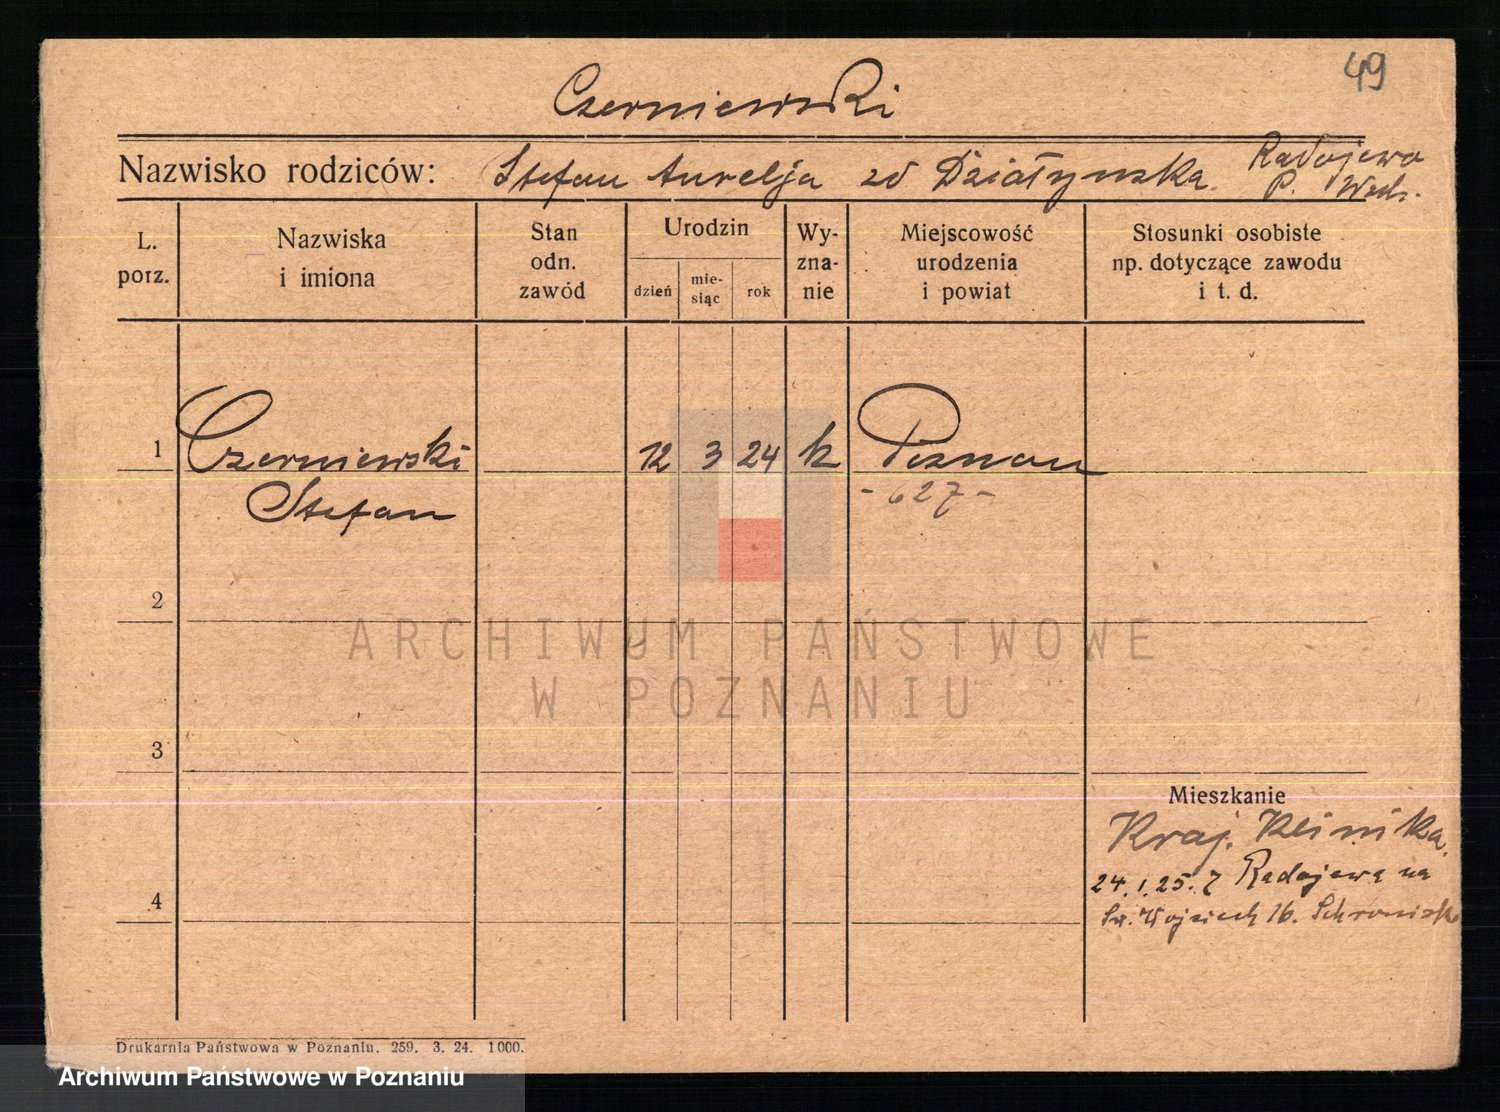 49
Czerniewski
Nazwisko rodziców: Stefan Aurelja zd Działyńska. Radojewo
P. Wsch.
L. porz.
Nazwiska i imiona
Stan odn. zawód
Urodzin
dzień
mie-siąc
rok
Wy-zna-nie
Miejscowość urodzenia i powiat
Stosunki osobiste np. dotyczące zawodu i t. d.
1 Czerniewski 12 3 24 k Poznań
Stefan - 627 -
2
ARCHIWUM PAŃSTWOWE
W POZNANIU
3
Mieszkanie
Kraj. Klinika.
24.1.25. z Radojewa na
4
Św. Wojciech 16. Schronisko
Drukarnia Państwowa w Poznaniu. 259. 3. 24. 1000.
Archiwum Państwowe w Poznaniu